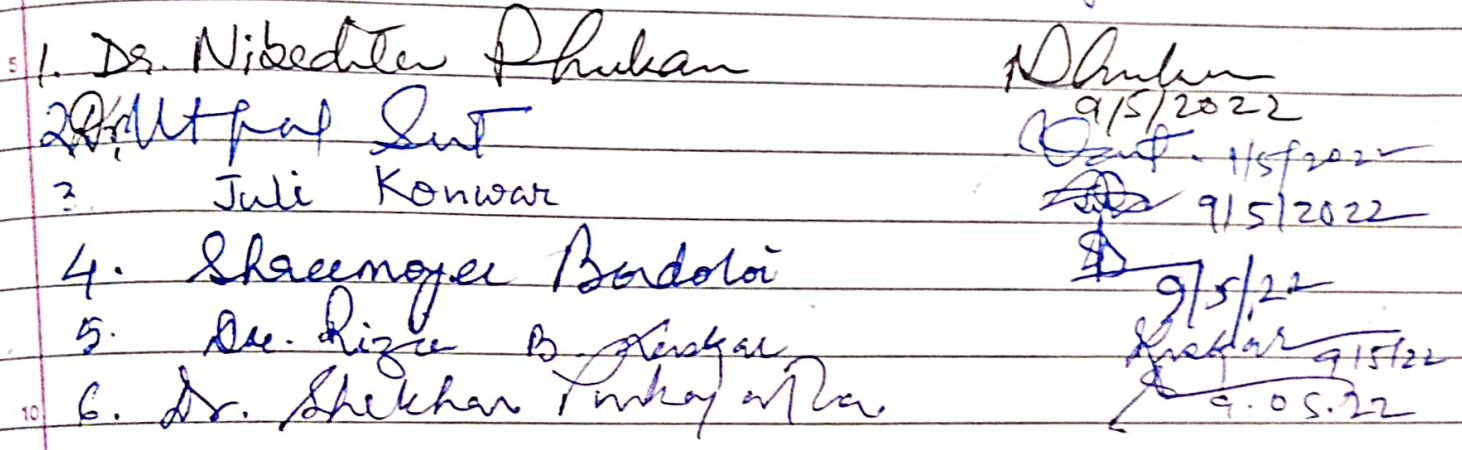 5 1. Dr. Nibedita Phukan NPhukan
9/5/2022
2 Dr. Utpal Sut USut. 9/5/2022
3. Juli Konwar 9/5/2022
4. Shreemoyee Bordoloi
9/5/22
5. Dr. Rizu B. 9/5/22
10 6. Dr. Shekhar Purkayastha 9.05.22